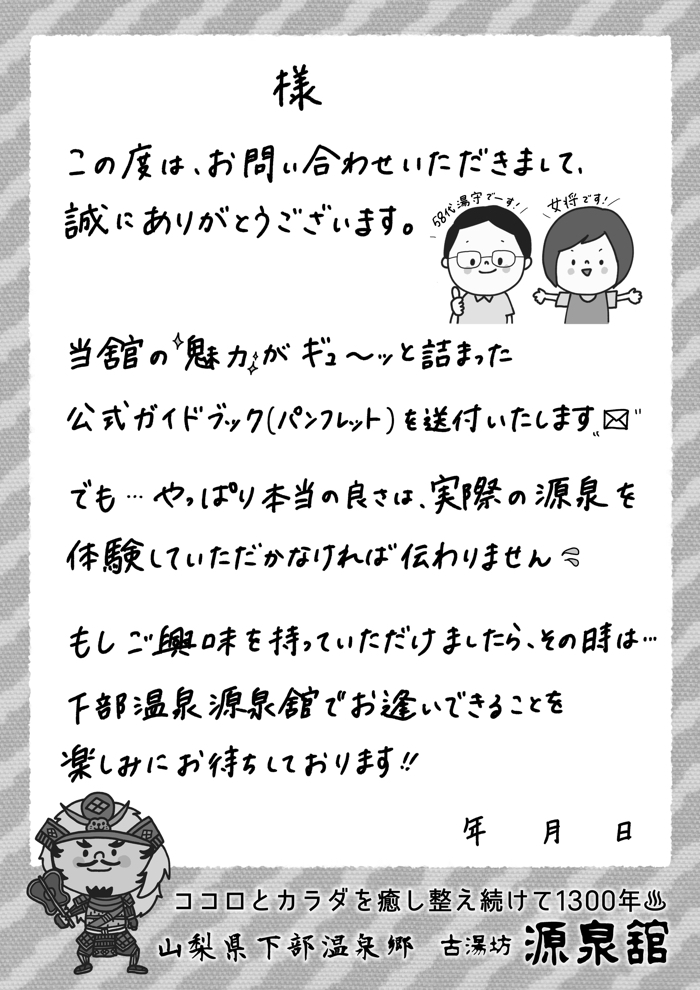 様
この度は、お問い合わせいただきまして、
誠にありがとうございます。
58代湯守でーす!
女将です!
当舘の魅力がギュ〜ッと詰まった
公式ガイドブック(パンフレット)を送付いたします
でも…やっぱり本当の良さは、実際の源泉を
体験していただかなければ伝わりません
もしご興味を持っていただけましたら、その時は…
下部温泉源泉舘でお逢いできることを
楽しみにお待ちしております!!
年 月 日
ココロとカラダを癒し整え続けて1300年♨
山梨県下部温泉郷 古湯坊 源泉舘